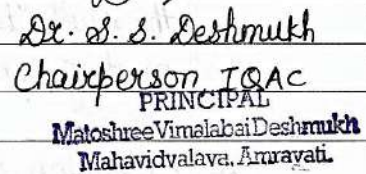 Dr. S. S. Deshmukh
Chairperson IQAC
PRINCIPAL
Matoshree Vimalabai Deshmukh
Mahavidyalaya, Amravati.